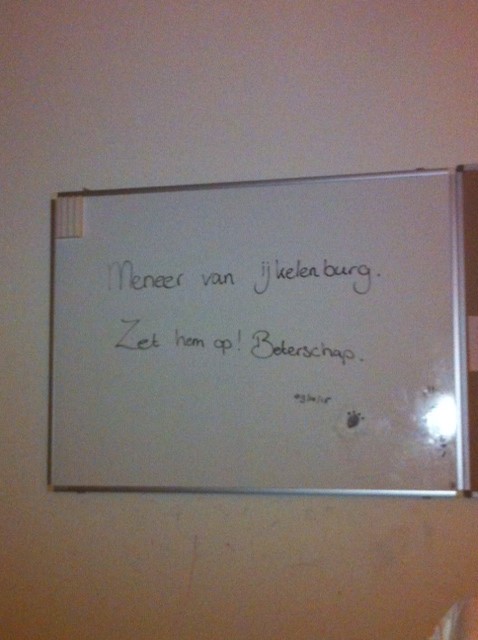 Meneer van ijkelenburg.
Zet hem op! Beterschap.